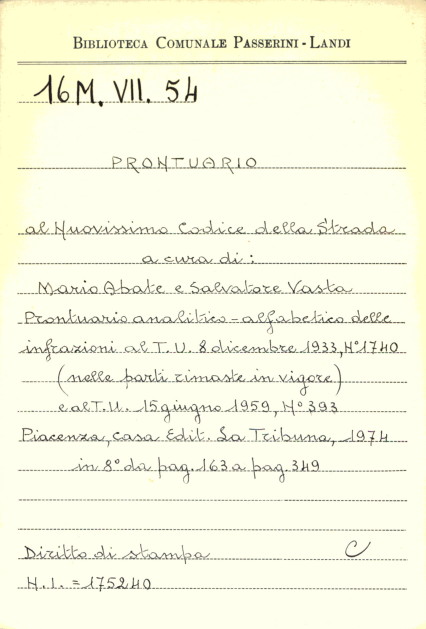 BIBLIOTECA COMUNALE PASSERINI - LANDI
16 M. VII. 54
PRONTUARIO
al Nuovissimo Codice della Strada
a cura di :
Mario Abate e Salvatore Vasta
Prontuario analitico - alfabetico delle
infrazioni al T. U. 8 dicembre 1933, N° 1740
(nelle parti rimaste in vigore)
e al T. U. 15 giugno 1959, N° 393
Piacenza, casa Edit. La Tribuna, 1974
in 8° da pag. 163 a pag. 349
Diritto di stampa C
N. I. = 175240